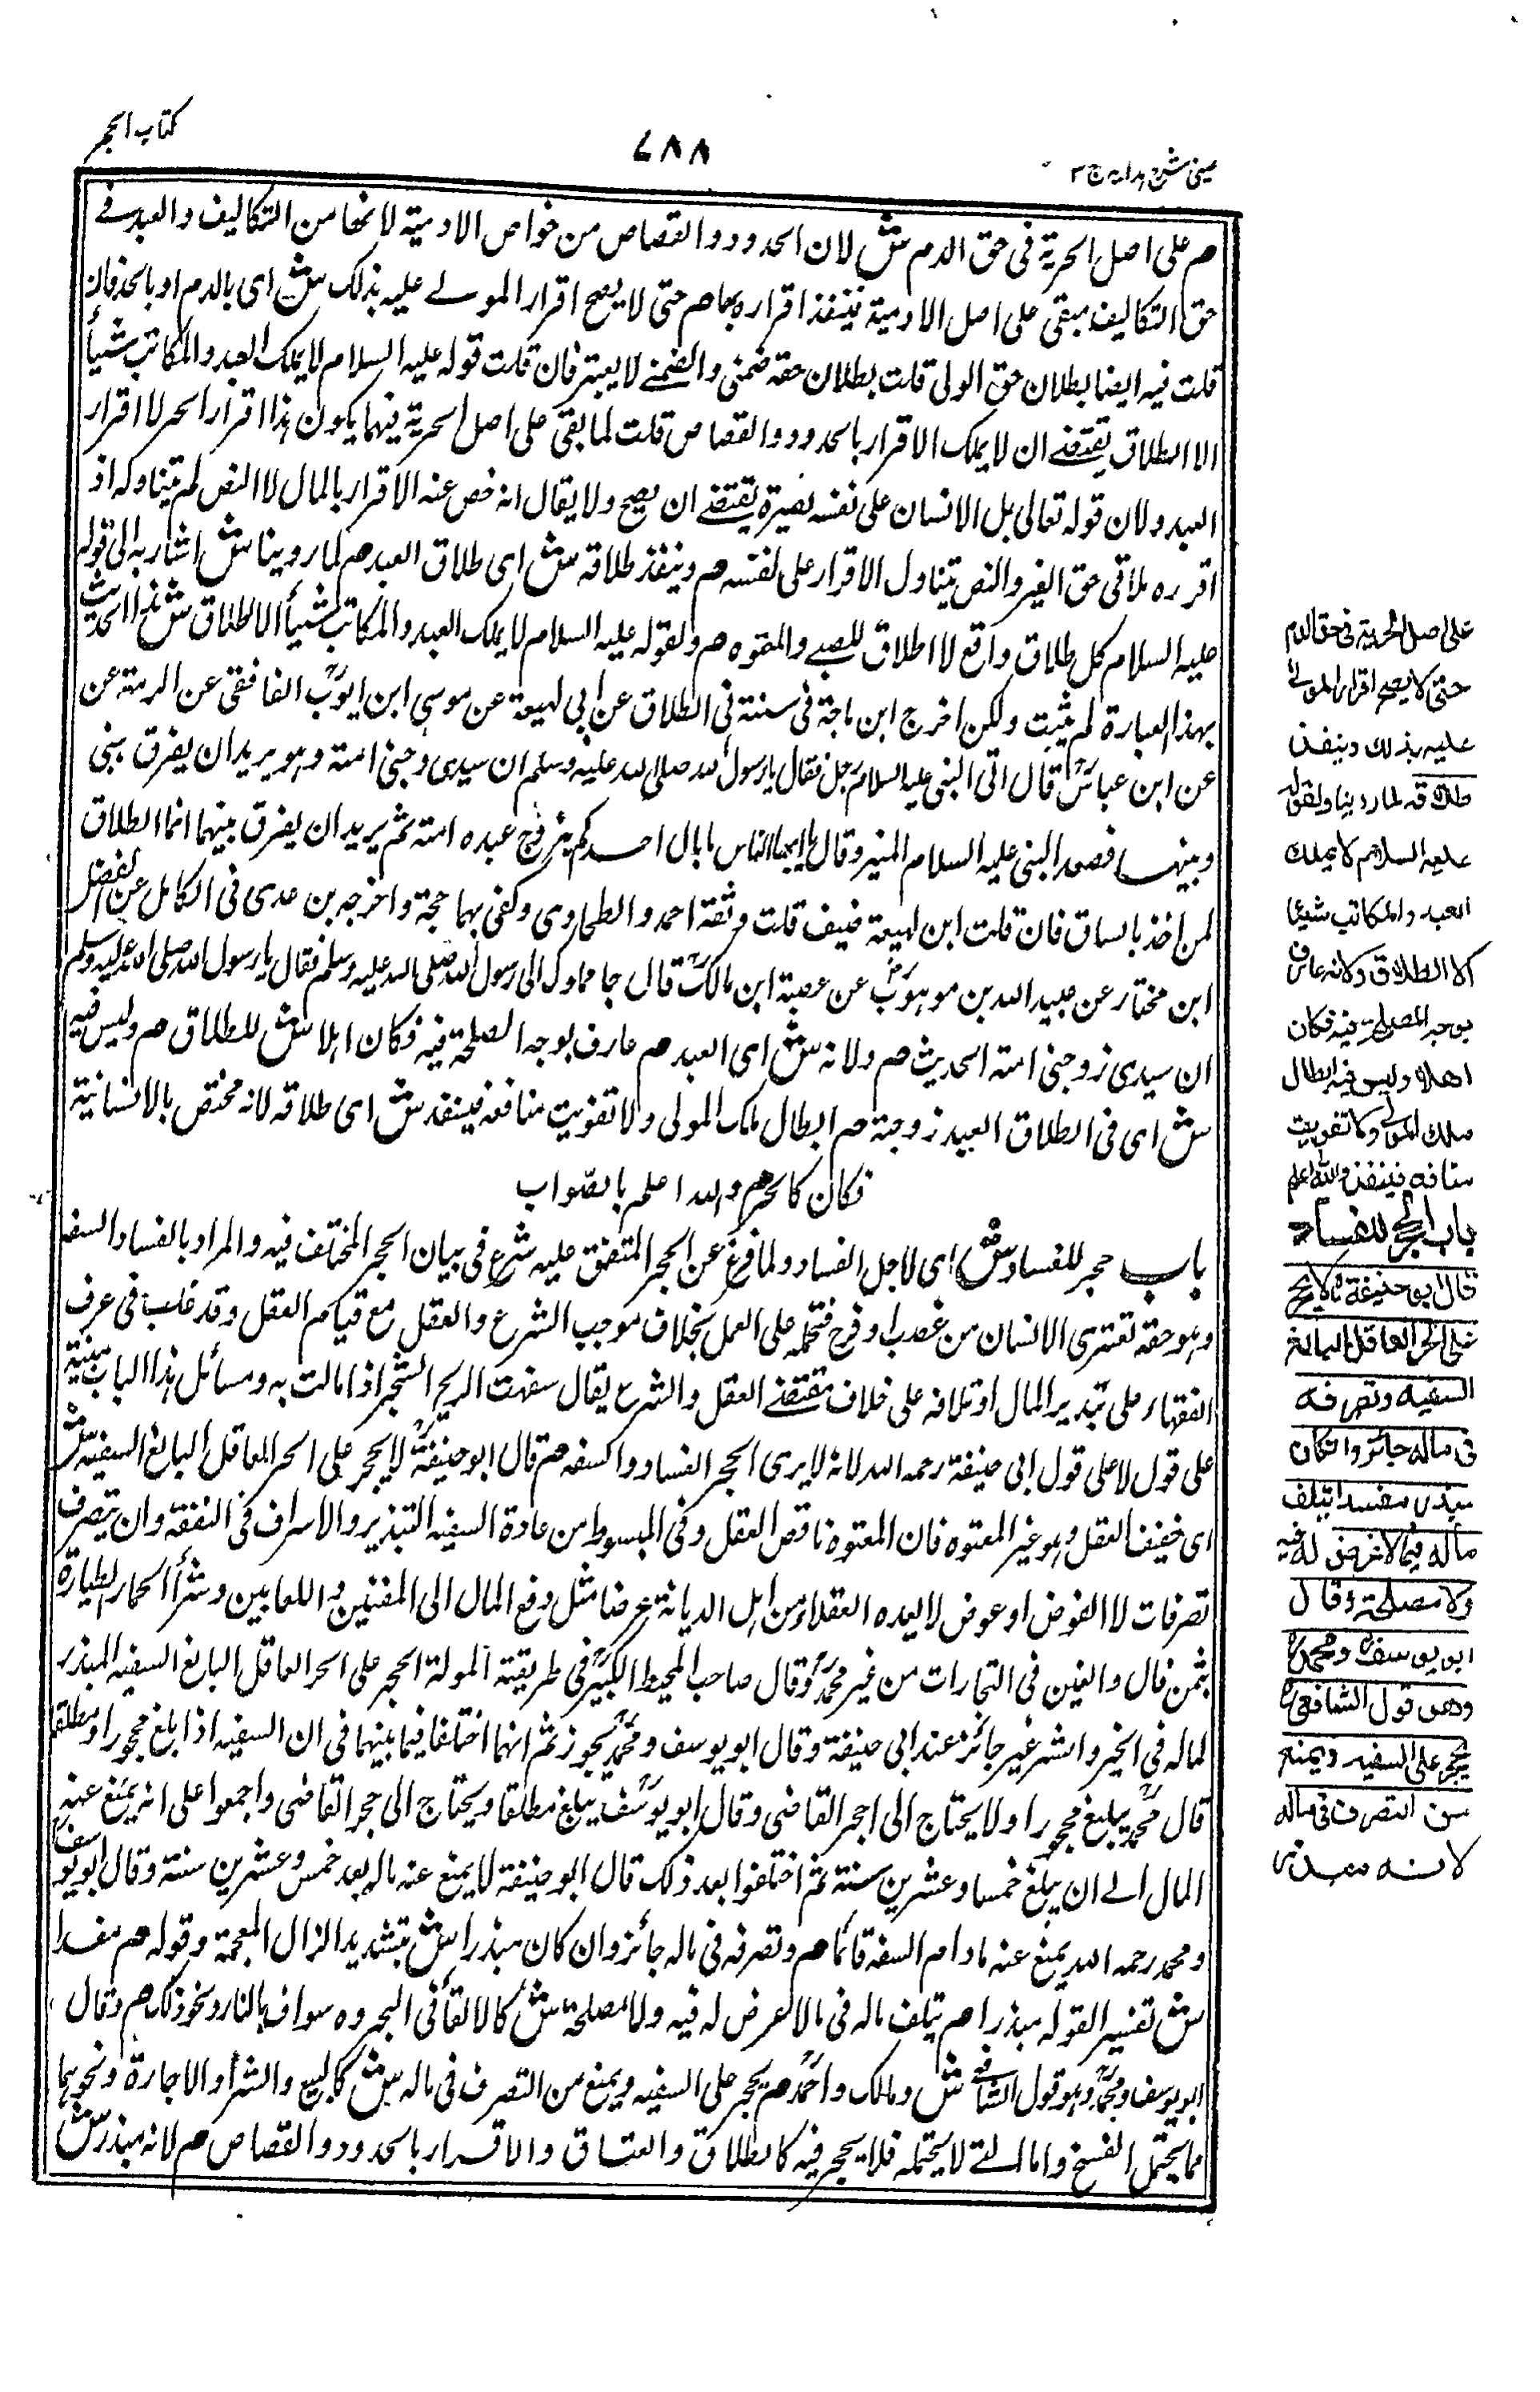 كتاب الحجر
٧٨٨
عینی شرح ہدایہ ج ٣
م على اصل الحرية فى حق الدم ش لان الحدود والقصاص من خواص الادمية لانها من التكاليف والعبد فے
حق التكاليف مبقى على اصل الادمية فينفذ اقراره بها م حتى لا يصح اقرار المولے عليه بذلك ش اى بالدم او بالحد فان
قلت فيه ايضا بطلان حق المولى قلت بطلان حقه ضمنى والضمنے لا يعتبر فان قلت قوله عليه السلام لا يملك العبد والمكاتب شيأ
الا الطلاق يقتضے ان لا يملك الاقرار بالحدود والقصاص قلت لما بقى على اصل الحرية فيهما يكون هذا اقرار الحر لا اقرار
العبد ولان قوله تعالى بل الانسان على نفسه بصيرة يقتضے ان يصح ولا يقال انه خص عنه الاقرار بالمال لا النص لم تيناوله اذ
اقرره ملاقى حق الغير والنص يتناول الاقرار على نفسه م وينفذ طلاقه ش اى طلاق العبد م لما روينا ش اشار به الى قوله
عليه السلام كل طلاق واقع لا طلاق للصبے والمعتوه م ولقوله عليه السلام لا يملك العبد والمكاتب شيأ الا الطلاق ش هذا الحديث
بهذا العبارة لم يثبت ولكن اخرج ابن ماجة فى سننة فى الطلاق عن ابى لهيعة عن موسى ابن ايوب الغافقى عن الرمة عن
عن ابن عباس قال اتى النبى عليه السلام رجل فقال يا رسول الله صلى الله عليه وسلم ان سيدى وجنى امته وهو يريد ان يفرق بينى
وبينها فصعد النبى عليه السلام المنبر وقال يا ايها الناس ما بال احدكم يزوج عبده امته ثم يريد ان يفرق بينهما انما الطلاق
لمن اخذ بالساق فان قلت ابن لهيعة ضيف قلت وثقه احمد والطحاوى وكفى بهما حجة واخرجه بن عدى فى الكامل عن الفضل
ابن مختار عن عبيد الله بن موهوب عن عصبة ابن مالك قال جا مملوك الى رسول الله صلى الله عليه وسلم فقال يا رسول الله صلى الله عليه وسلم
ان سيدى زوجنى امته الحديث م ولانه ش اى العبد م عارف بوجه الصلحة فيه فكان اهلا ش للطلاق م وليس فيه
ش اى فى الطلاق العبد زوجته م ابطال ملك المولى ولا تفويت منافعه فينفذ ش اى طلاقه لانه مختص بالانسانية
فكان كالحر م والله اعلم بالصواب
باب حجر للفساد ش اى لاجل الفساد ولما فرغ عن الحجر المتفق عليه شرع فى بيان الحجر المختلف فيه والمراد بالفساد السفه
وهو خفة تعترى الانسان من غضب او فرح فتحمله على العمل بخلاف موجب الشرع والعقل مع قيام العقل وقد غلب فى عرف
الفقهاء على تبذير المال او تلافه على خلاف مقتضے العقل والشرع يقال سفهت الريح الشجر اذا مالت به ومسائل هذا الباب مبنية
على قول لا على قول ابى حنيفة رحمه الله لانه لا يرى الحجر الفساد واكسفه م قال ابو حنيفة لا يحجر على الحر العاقل البالغ السفيه ش
اى خفيف العقل وهو غير المعتوه فان المعتوه ناقص العقل وفى المبسوط من عادة السفيه التبذير والاسراف فى النفقه وان يتصرف
تصرفات لا الغرض او عوض لا يعده العقلاء من اهل الديانة عرضا مثل دفع المال الى المغنين واللعابين وشرأ الحمار الطيارة
بثمن غال والغبن فى التجارات من غير محمد وقال صاحب المحيط الكبير فى طريقته المولة الحجر على الحر العاقل البالغ السفيه المبذر
لماله فى الخير والشر غير جائز عند ابى حنيفة وقال ابو يوسف ومحمد يجوز ثم انهما اختلفا فيما بينهما فى ان السفيه اذا بلغ محجورا او مطلقا
قال محمد يبلغ محجورا ولا يحتاج الى احجر القاضى وقال ابو يوسف يبلغ مطلقا ويحتاج الى حجر القاضى واجمعوا على انه يمنع عنه
المال الے ان يبلغ خمسا وعشرين سنة ثم اختلفوا بعد ذلك قال ابو حنيفة لا يمنع عنه ماله بعد خمس وعشرين سنة وقال ابو يوسف
ومحمد رحمه الله يمنع عنه مادام السفه قائما م وتصرفه فى ماله جائز وان كان مبذرا ش بتشديد الزال المعجمة وقوله م مفسدا
ش تفسير القوله مبذرا م يتلف ماله فى مالا لغرض له فيه ولا مصلحة ش كالالقأ فى البحر وه سواف بالنار ونحو ذلك م وقال
ابو يوسف ومحمد وهو قول الشافعى ش ومالك واحمد م يحجر على السفيه ويمنع من التصرف فى ماله ش كالبيع والشرأ والاجارة ونحوهما
مما يحتمل الفسخ واما التے لا يحتمله فلا يحجر فيه كالطلاق والعتاق والاقرار بالحدود والقصاص م لانه مبذر ش
على اصل الحرية فى حق الدم
حتى لا يصح اقرار المولے
عليه بذلك وينفذ
طلاقه لما روينا ولقوله
عليه السلام لا يملك
العبد والمكاتب شيئا
الا الطلاق ولانه عارف
بوجه المصلحة فيه فكان
اهلا وليس فيه ابطال
ملك المولى ولا تفويت
منافعه فينفذ والله اعلم
باب الحجر للفساد
قال ابو حنيفة لا يحجر
على الحر العاقل البالغ
السفيه وتصرفه
فى ماله جائز وان كان
مبذرا مفسدا يتلف
ماله فيما لا غرض له فيه
ولا مصلحة وقال
ابو يوسف ومحمد
وهو قول الشافعى
يحجر على السفيه ويمنع
من التصرف فى ماله
لانه مبذر